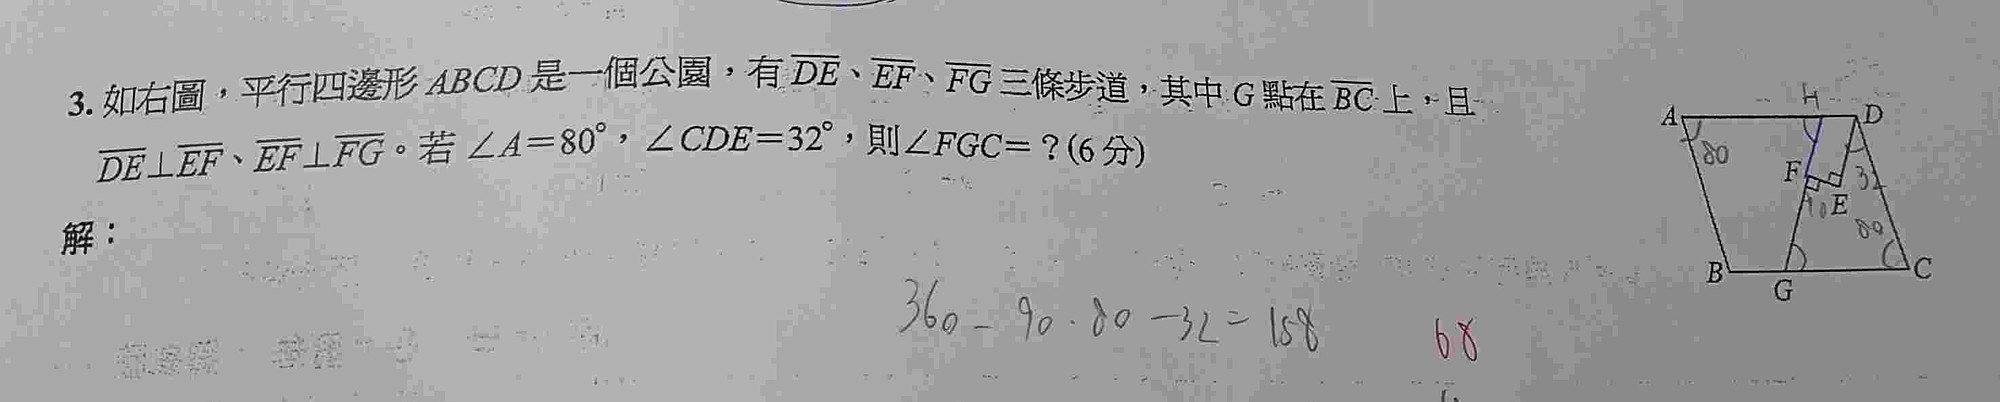 3. 如右圖，平行四邊形 ABCD 是一個公園，有 DE、EF、FG 三條步道，其中 G 點在 BC 上，且
DE⊥EF、EF⊥FG。若 ∠A＝80°，∠CDE＝32°，則∠FGC＝？(6 分)
解：
360 - 90 - 80 - 32 = 158
68
H
A
D
80
F
32
90
E
80
B
G
C